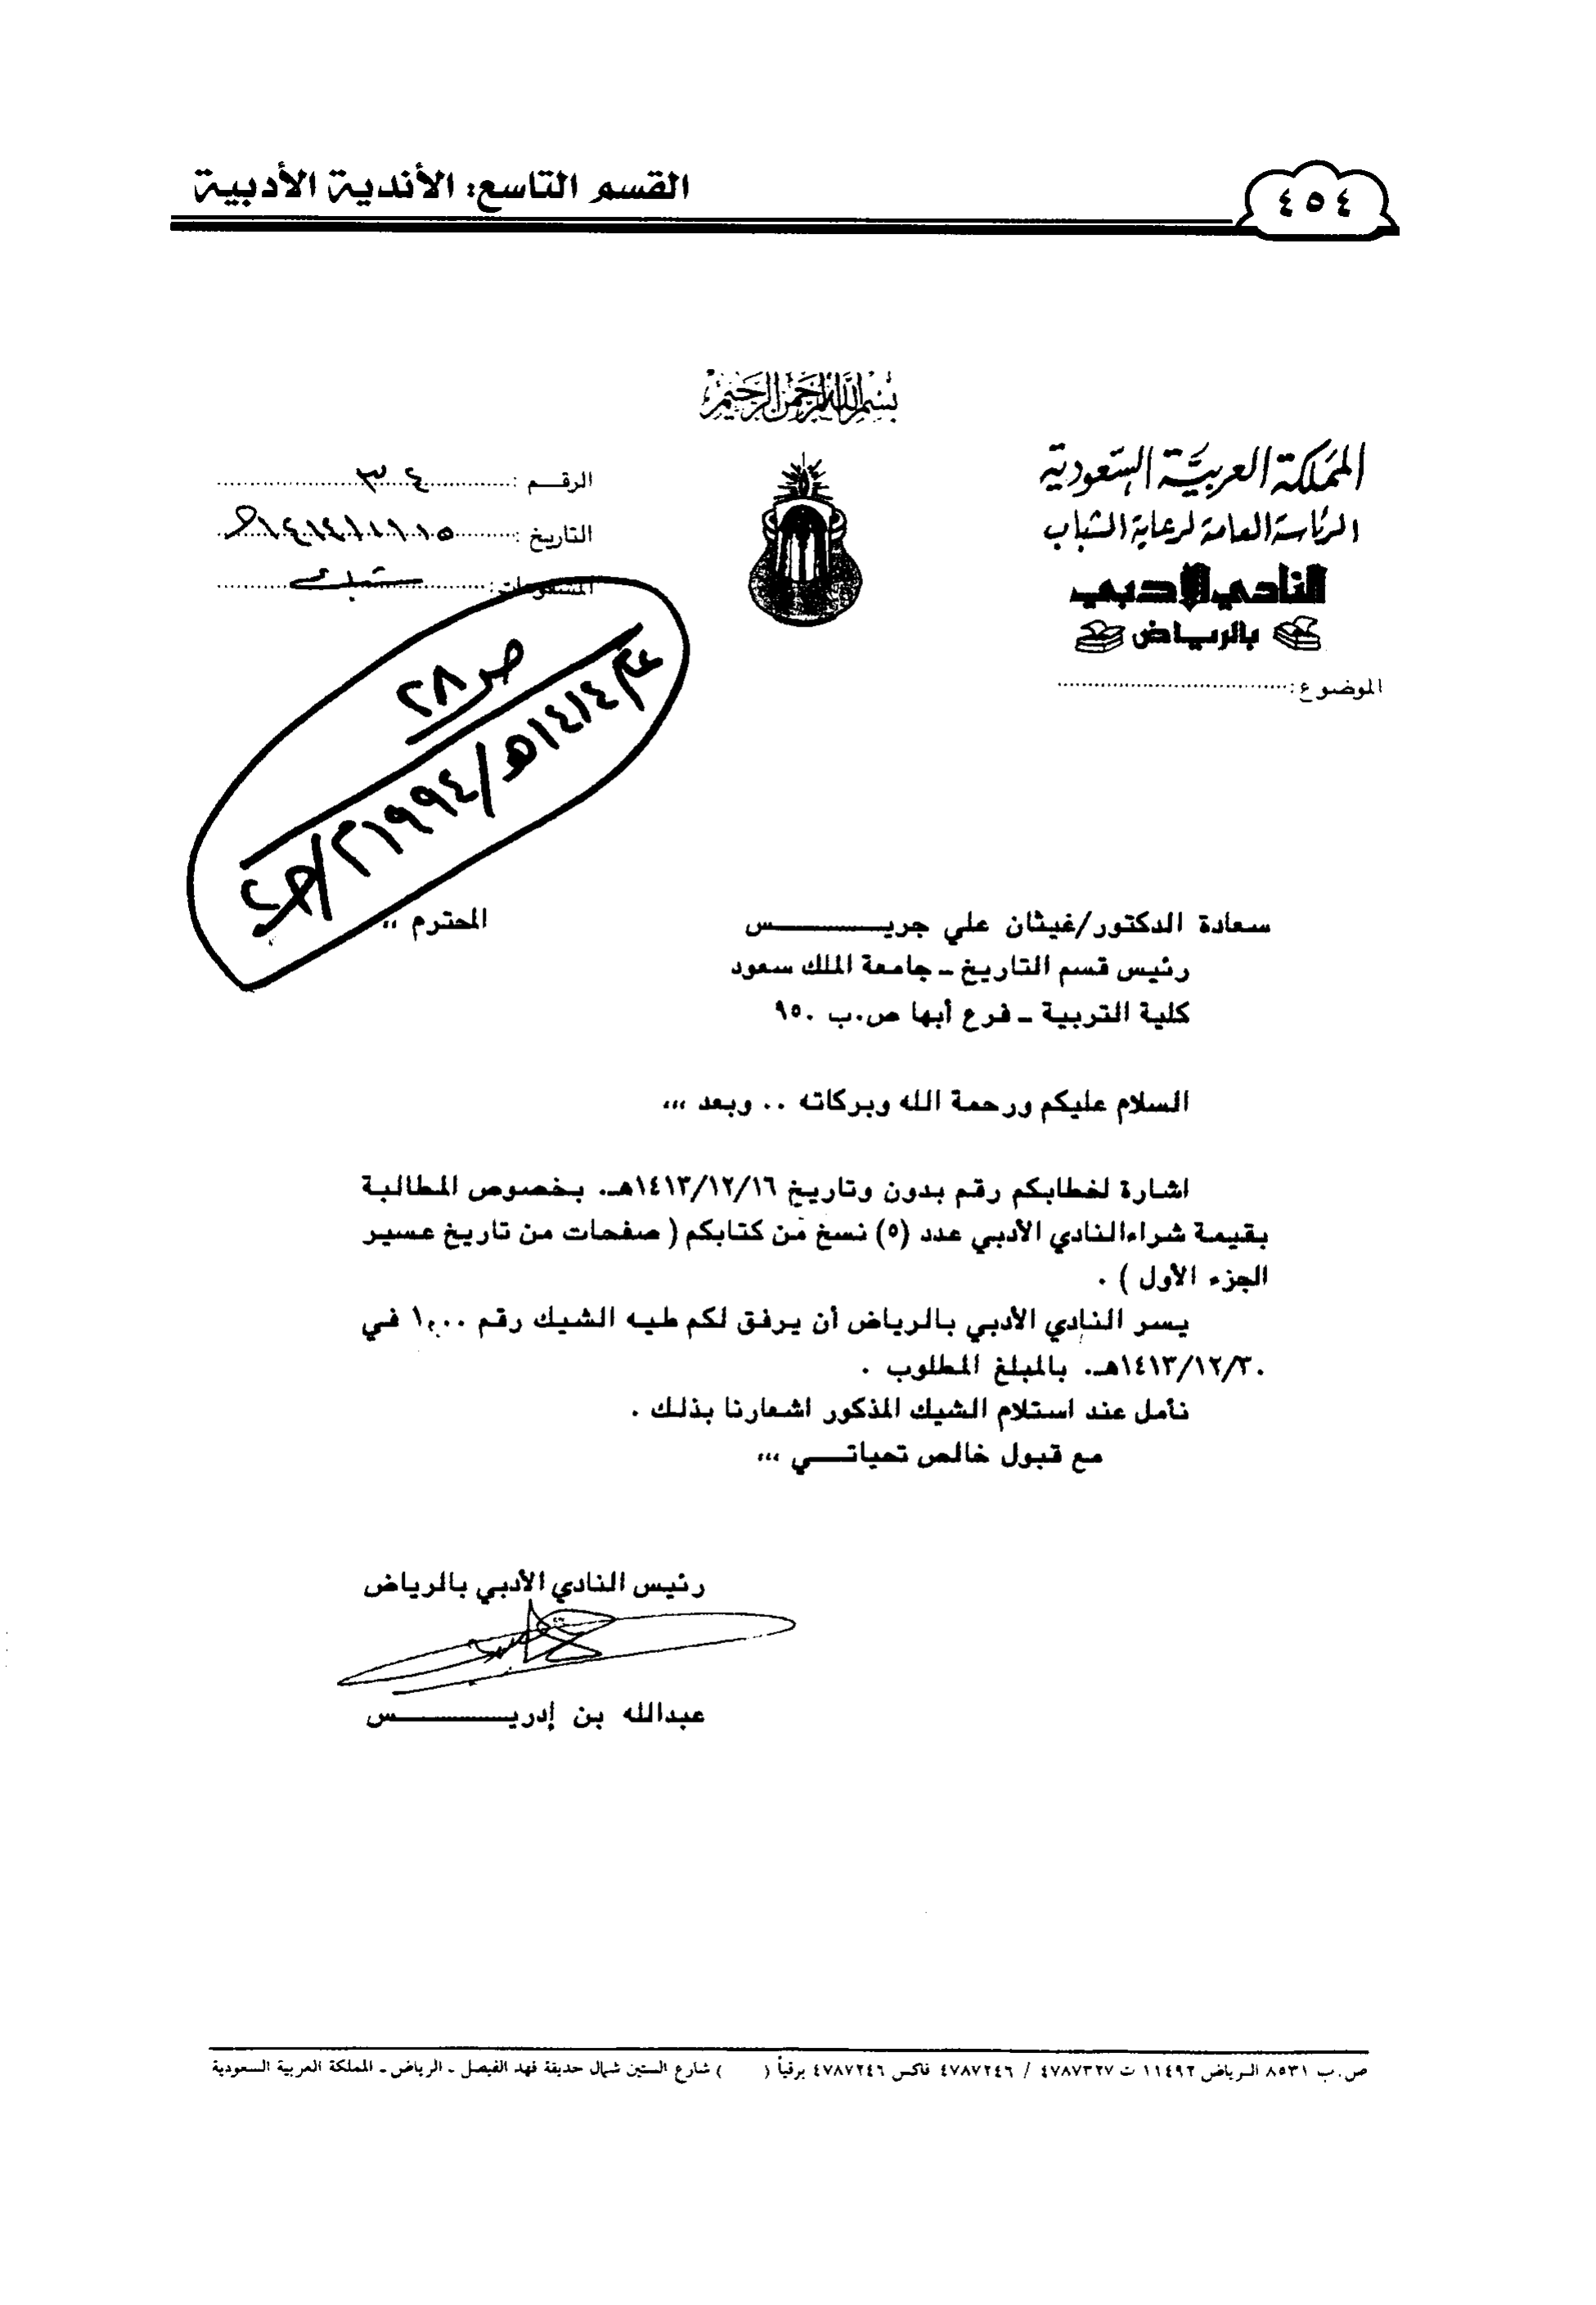 القسم التاسع: الأندية الأدبية
٤٥٤
بسم الله الرحمن الرحيم
المملكة العربية السعودية
الرئاسة العامة لرعاية الشباب
النادي الأدبي
بالرياض
الموضوع:
الرقـــم :
التاريخ :
المشفوعات :
ص ٢٨
١٤١٤هـ/١٩٩٤م
سعادة الدكتور/غيثان علي جريـــــــس المحترم ،،
رئيس قسم التاريخ ـ جامعة الملك سعود
كلية التربية ـ فرع أبها ص.ب ٩٥٠
السلام عليكم ورحمة الله وبركاته .. وبعد ،،،
اشارة لخطابكم رقم بدون وتاريخ ١٤١٣/١٢/١٦هـ. بخصوص المطالبة
بقيمة شراءالنادي الأدبي عدد (٥) نسخ من كتابكم ( صفحات من تاريخ عسير
الجزء الأول ) .
يسر النادي الأدبي بالرياض أن يرفق لكم طيه الشيك رقم في
١٤١٣/١٢/٣٠هـ. بالمبلغ المطلوب .
نأمل عند استلام الشيك المذكور اشعارنا بذلك .
مع قبول خالص تحياتــي ،،،
رئيس النادي الأدبي بالرياض
عبدالله بن إدريـــــــس
ص.ب ٨٥٣١ الرياض ١١٤٩٢ ت ٤٧٨٧٣٢٧ / ٤٧٨٧٢٤٦ فاكس ٤٧٨٧٢٤٦ برقياً ( ) شارع الستين شمال حديقة فهد الفيصل ـ الرياض ـ المملكة العربية السعودية